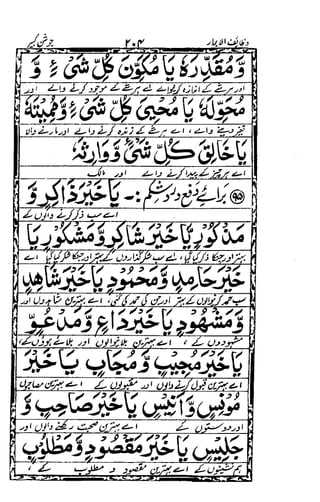 وظائف الابرار ۲۰۴ جوشن کبیر
وَمُقَدِّرَهٗ یَا مُكَوِّنَ كُلِّ شَیْءٍ وَّ
اور ہر شے کے اندازہ کرنیوالے اے ہر شے کے موجود کرنے والے اور
مُحَوِّلَهٗ یَا مُحْیِیَ كُلِّ شَیْءٍ وَّمُمِیْتَهٗ
تغیر دینے والے، اے ہر شے کے زندہ کرنے والے اور مارنے والا
یَا خَالِقَ كُلِّ شَیْءٍ وَّوَارِثَهٗ
اے ہر چیز کے پیدا کرنے والے اور مالک
۹۵ برائے دفع درد شکم :- یَا خَیْرَ ذَاكِرٍ وَّ
اے سب ذکر کرنے والوں کے
مَذْكُوْرٍ یَا خَیْرَ شَاكِرٍ وَّمَشْكُوْرٍ یَا
بہتر اور جنکا ذکر کیا گیا، اے سب شکر گذاروں کے بہتر اور جنکا شکر کیا گیا اے
خَیْرَ حَامِدٍ وَّمَحْمُوْدٍ یَا خَیْرَ شَاهِدٍ
سب حمد کرنیوالوں کے بہتر اور جن کی حمد کی گئی، اے بہترین شاہدوں اور
وَّمَشْهُوْدٍ یَا خَیْرَ دَاعٍ وَّمَدْعُوٍّ
مشہودوں کے، اے بہترین بلانیوالوں اور بلائے ہوؤں کے
یَا خَیْرَ مُجِیْبٍ وَّمُجَابٍ یَا خَیْرَ
اے بہترین قبول کرنے والوں اور مقبولوں کے اے بہترین مصاحبوں
مُوْنِسٍ وَّاَنِیْسٍ یَا خَیْرَ صَاحِبٍ وَّ
اور دوستوں کے اے بہترین صحبت رکھنے والوں اور
جَلِیْسٍ یَا خَیْرَ مَقْصُوْدٍ وَّمَطْلُوْبٍ
ہم نشینوں کے اے بہترین مقصود و مطلوب کے،